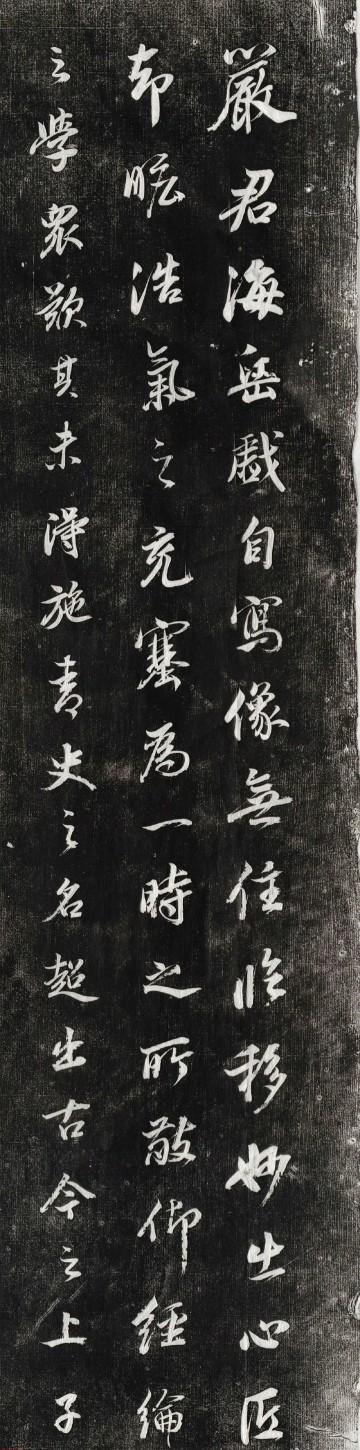 嚴君海岳戲自寫像無住臨移妙出心匠
却瞻浩氣之充塞為一時之所敬仰經綸
之學衆歎其未得施青史之名超出古今之上子